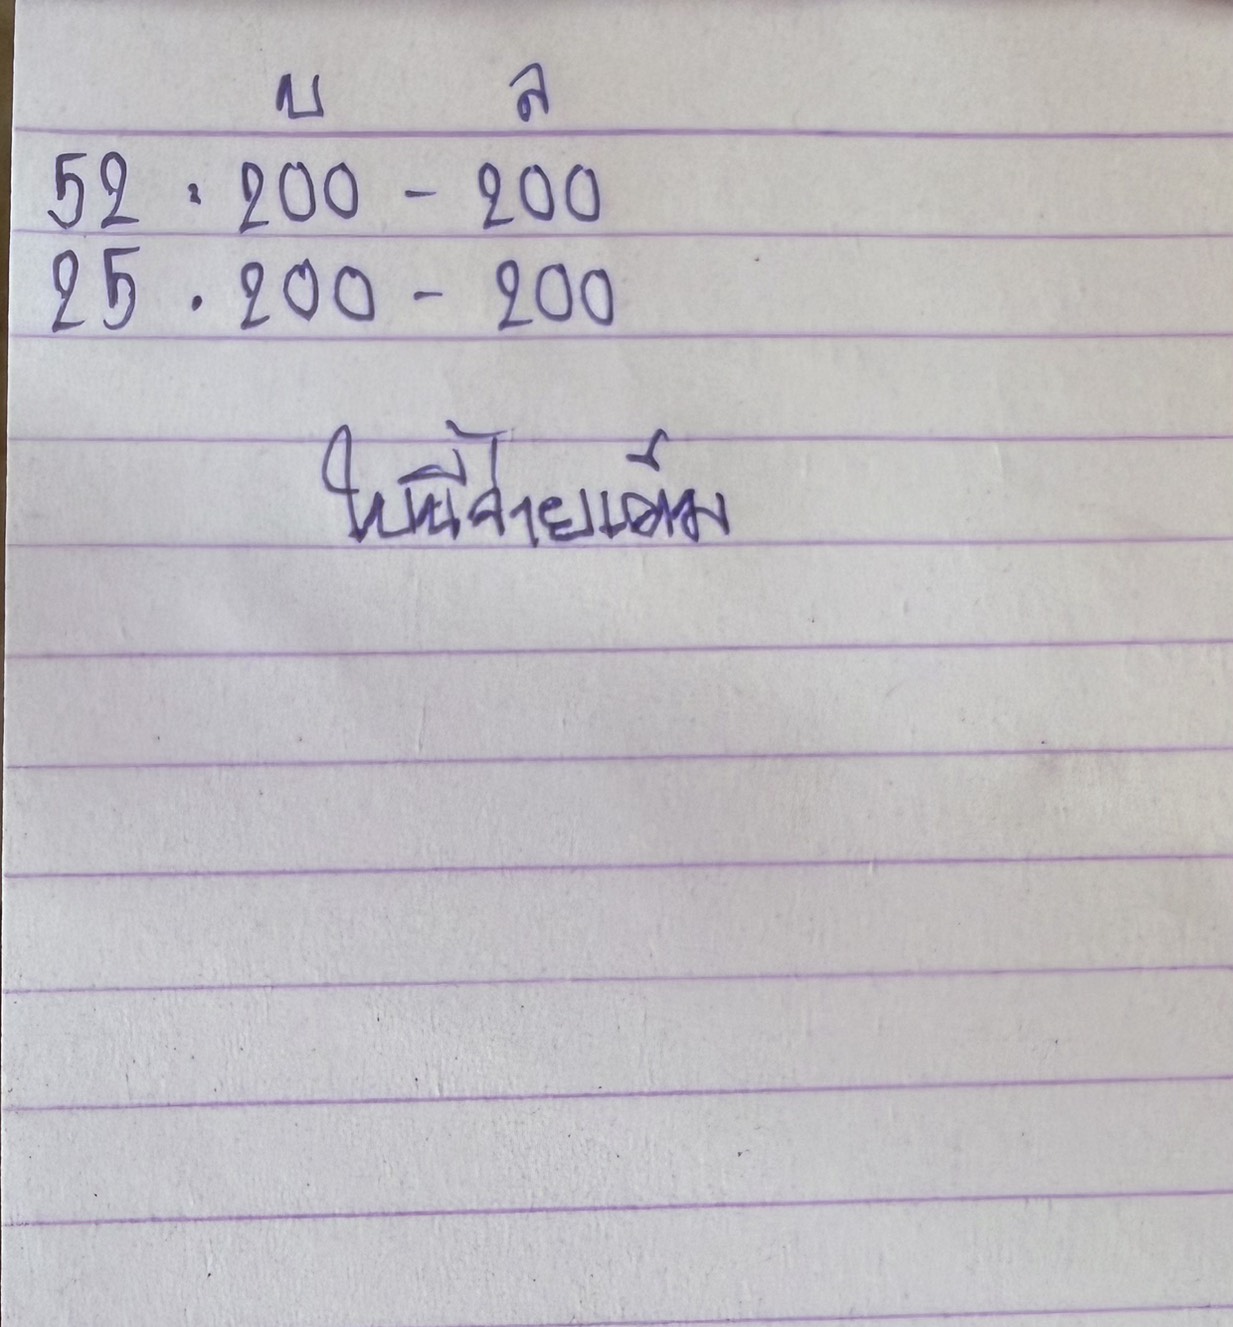 บ ล
52 . 200 - 200
25 . 200 - 200
ใบนี้จ่ายเต็ม